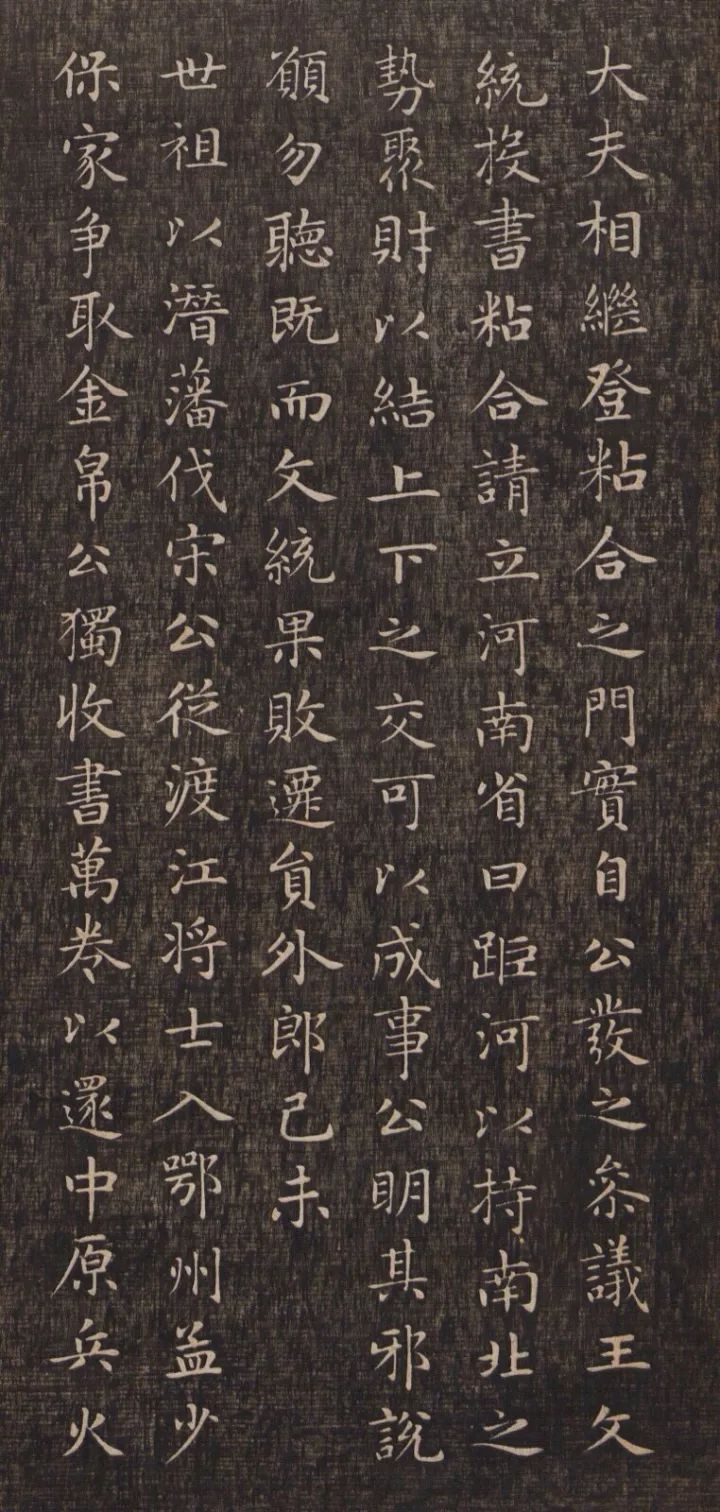 大夫相繼登粘合之門實自公發之叅議王文
統投書粘合請立河南省曰距河以持南北之
勢聚財以結上下之交可以成事公明其邪說
願勿聽既而文統果敗遷貟外郎己未
世祖以潛藩伐宋公從渡江将士入鄂州孟少
保家争取金帛公獨收書萬卷以還中原兵火